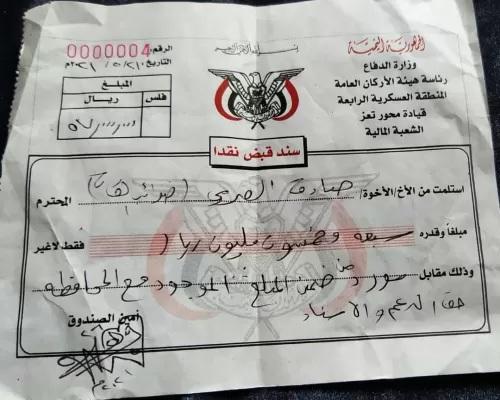 الجمهورية اليمنية
وزارة الدفاع
رئاسة هيئة الأركان العامة
المنطقة العسكرية الرابعة
قيادة محور تعز
الشعبة المالية
بسم الله الرحمن الرحيم
الرقم: 0000004
التاريخ:
المبلغ
ريال فلس
سند قبض نقدا
استلمت من الأخ/الأخوة/ صادق المحترم
مبلغا وقدره سبعه وخمسون مليون ريال فقط لاغير
وذلك مقابل مورد من ضمن المبلغ الموجود مع المحافظه
حق الدعم والاسناد
أمين الصندوق